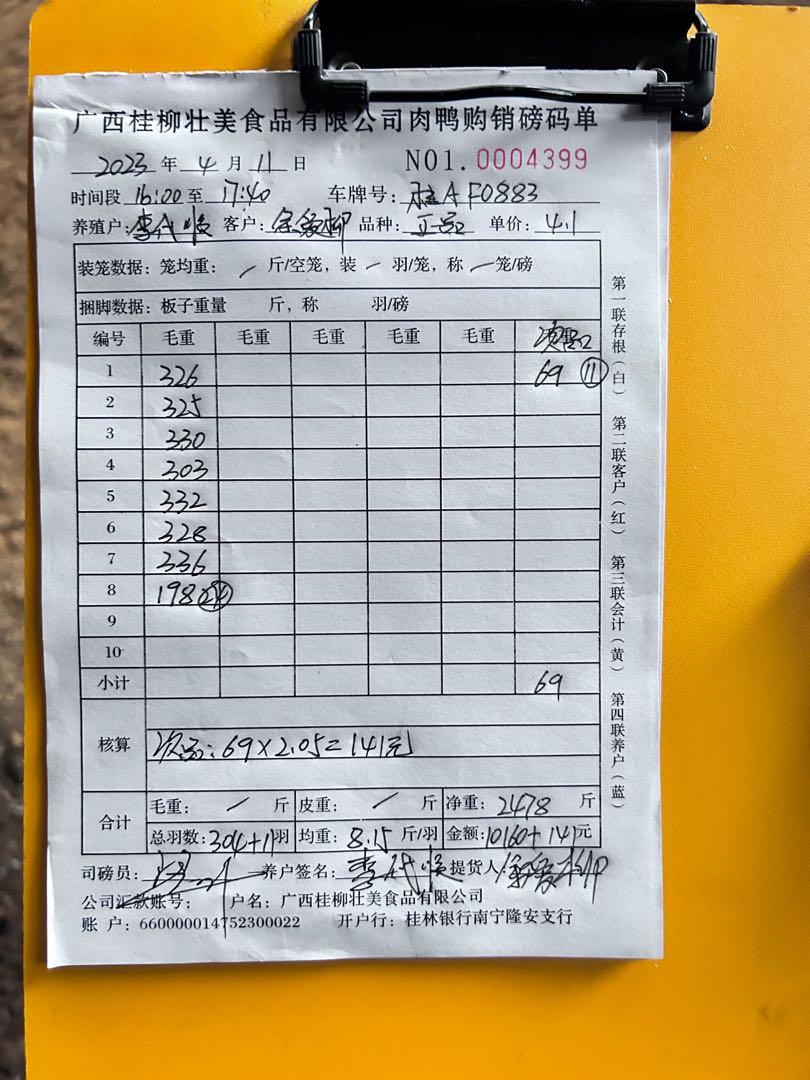 广西桂柳壮美食品有限公司肉鸭购销磅码单
2023 年 4 月 11 日 NO1.0004399
时间段 16:00 至 17:40 车牌号: 桂A F0883
养殖户: 李代 客户: 品种: 正品 单价: 4.1
装笼数据: 笼均重: / 斤/空笼, 装 / 羽/笼, 称 / 笼/磅
捆脚数据: 板子重量 斤, 称 羽/磅
编号 毛重 毛重 毛重 毛重 毛重 次品
1 326 69 ⑪
2 325
3 330
4 303
5 332
6 328
7 336
8 198 ㉔
9
10
小计 69
核算 次品: 69×2.05=141元
合计 毛重: / 斤 皮重: / 斤 净重: 2478 斤
总羽数: 304+11 羽 均重: 8.15 斤/羽 金额: 10160+141 元
司磅员: 养户签名: 李代 提货人
公司汇款账号: 户名: 广西桂柳壮美食品有限公司
账 户: 660000014752300022 开户行: 桂林银行南宁隆安支行
第一联存根(白) 第二联客户(红) 第三联会计(黄) 第四联养户(蓝)